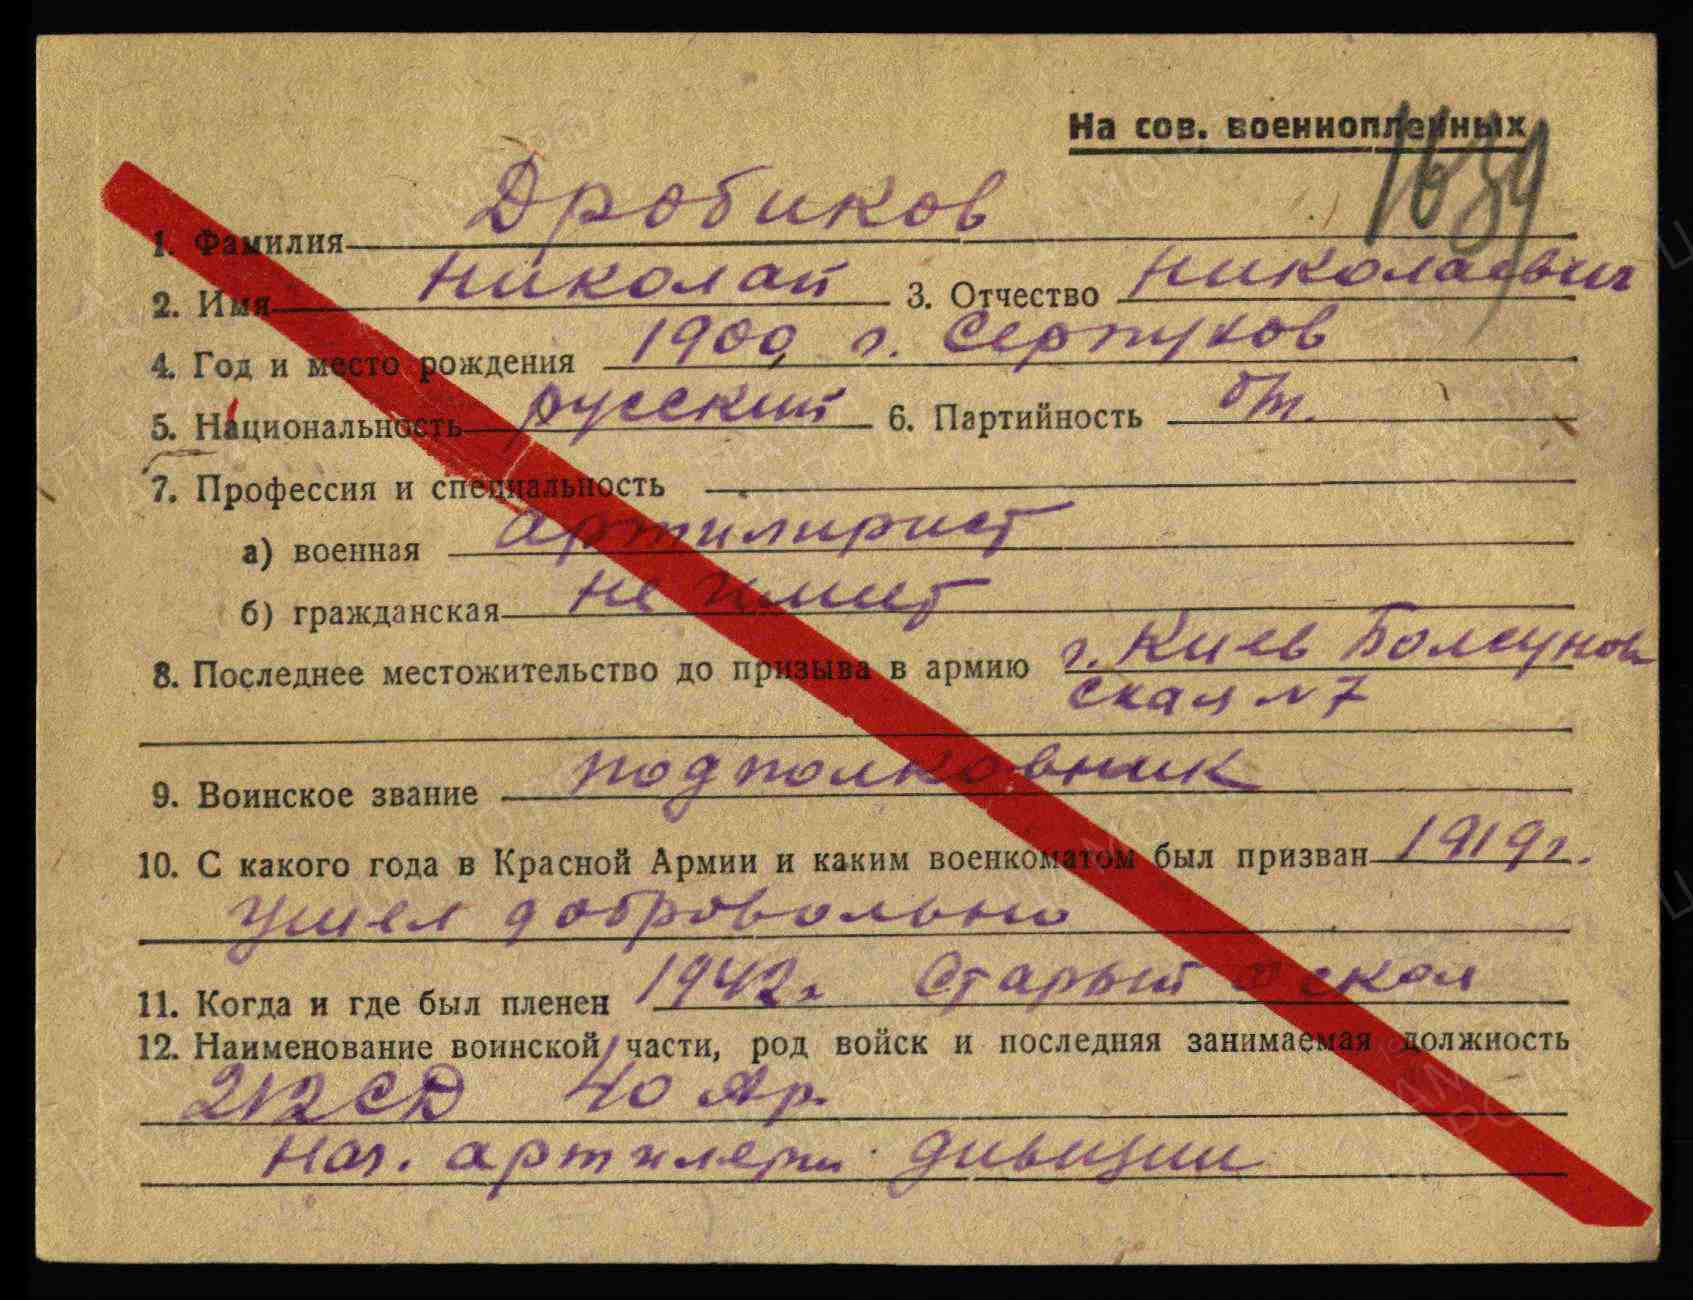 На сов. военнопленных
1639
1. Фамилия Дробиков
2. Имя Николай 3. Отчество Николаевич
4. Год и место рождения 1900, г. Серпухов
5. Национальность русский 6. Партийность б/п.
7. Профессия и специальность
а) военная артилирист
б) гражданская не имеет
8. Последнее местожительство до призыва в армию г. Киев Болсунов
ская №7
9. Воинское звание подполковник
10. С какого года в Красной Армии и каким военкоматом был призван 1919г.
Ушел добровольно
11. Когда и где был пленен 1942г. Старый Оскол
12. Наименование воинской части, род войск и последняя занимаемая должность
212 СД 40 Ар.
Нач. артилерии дивизии